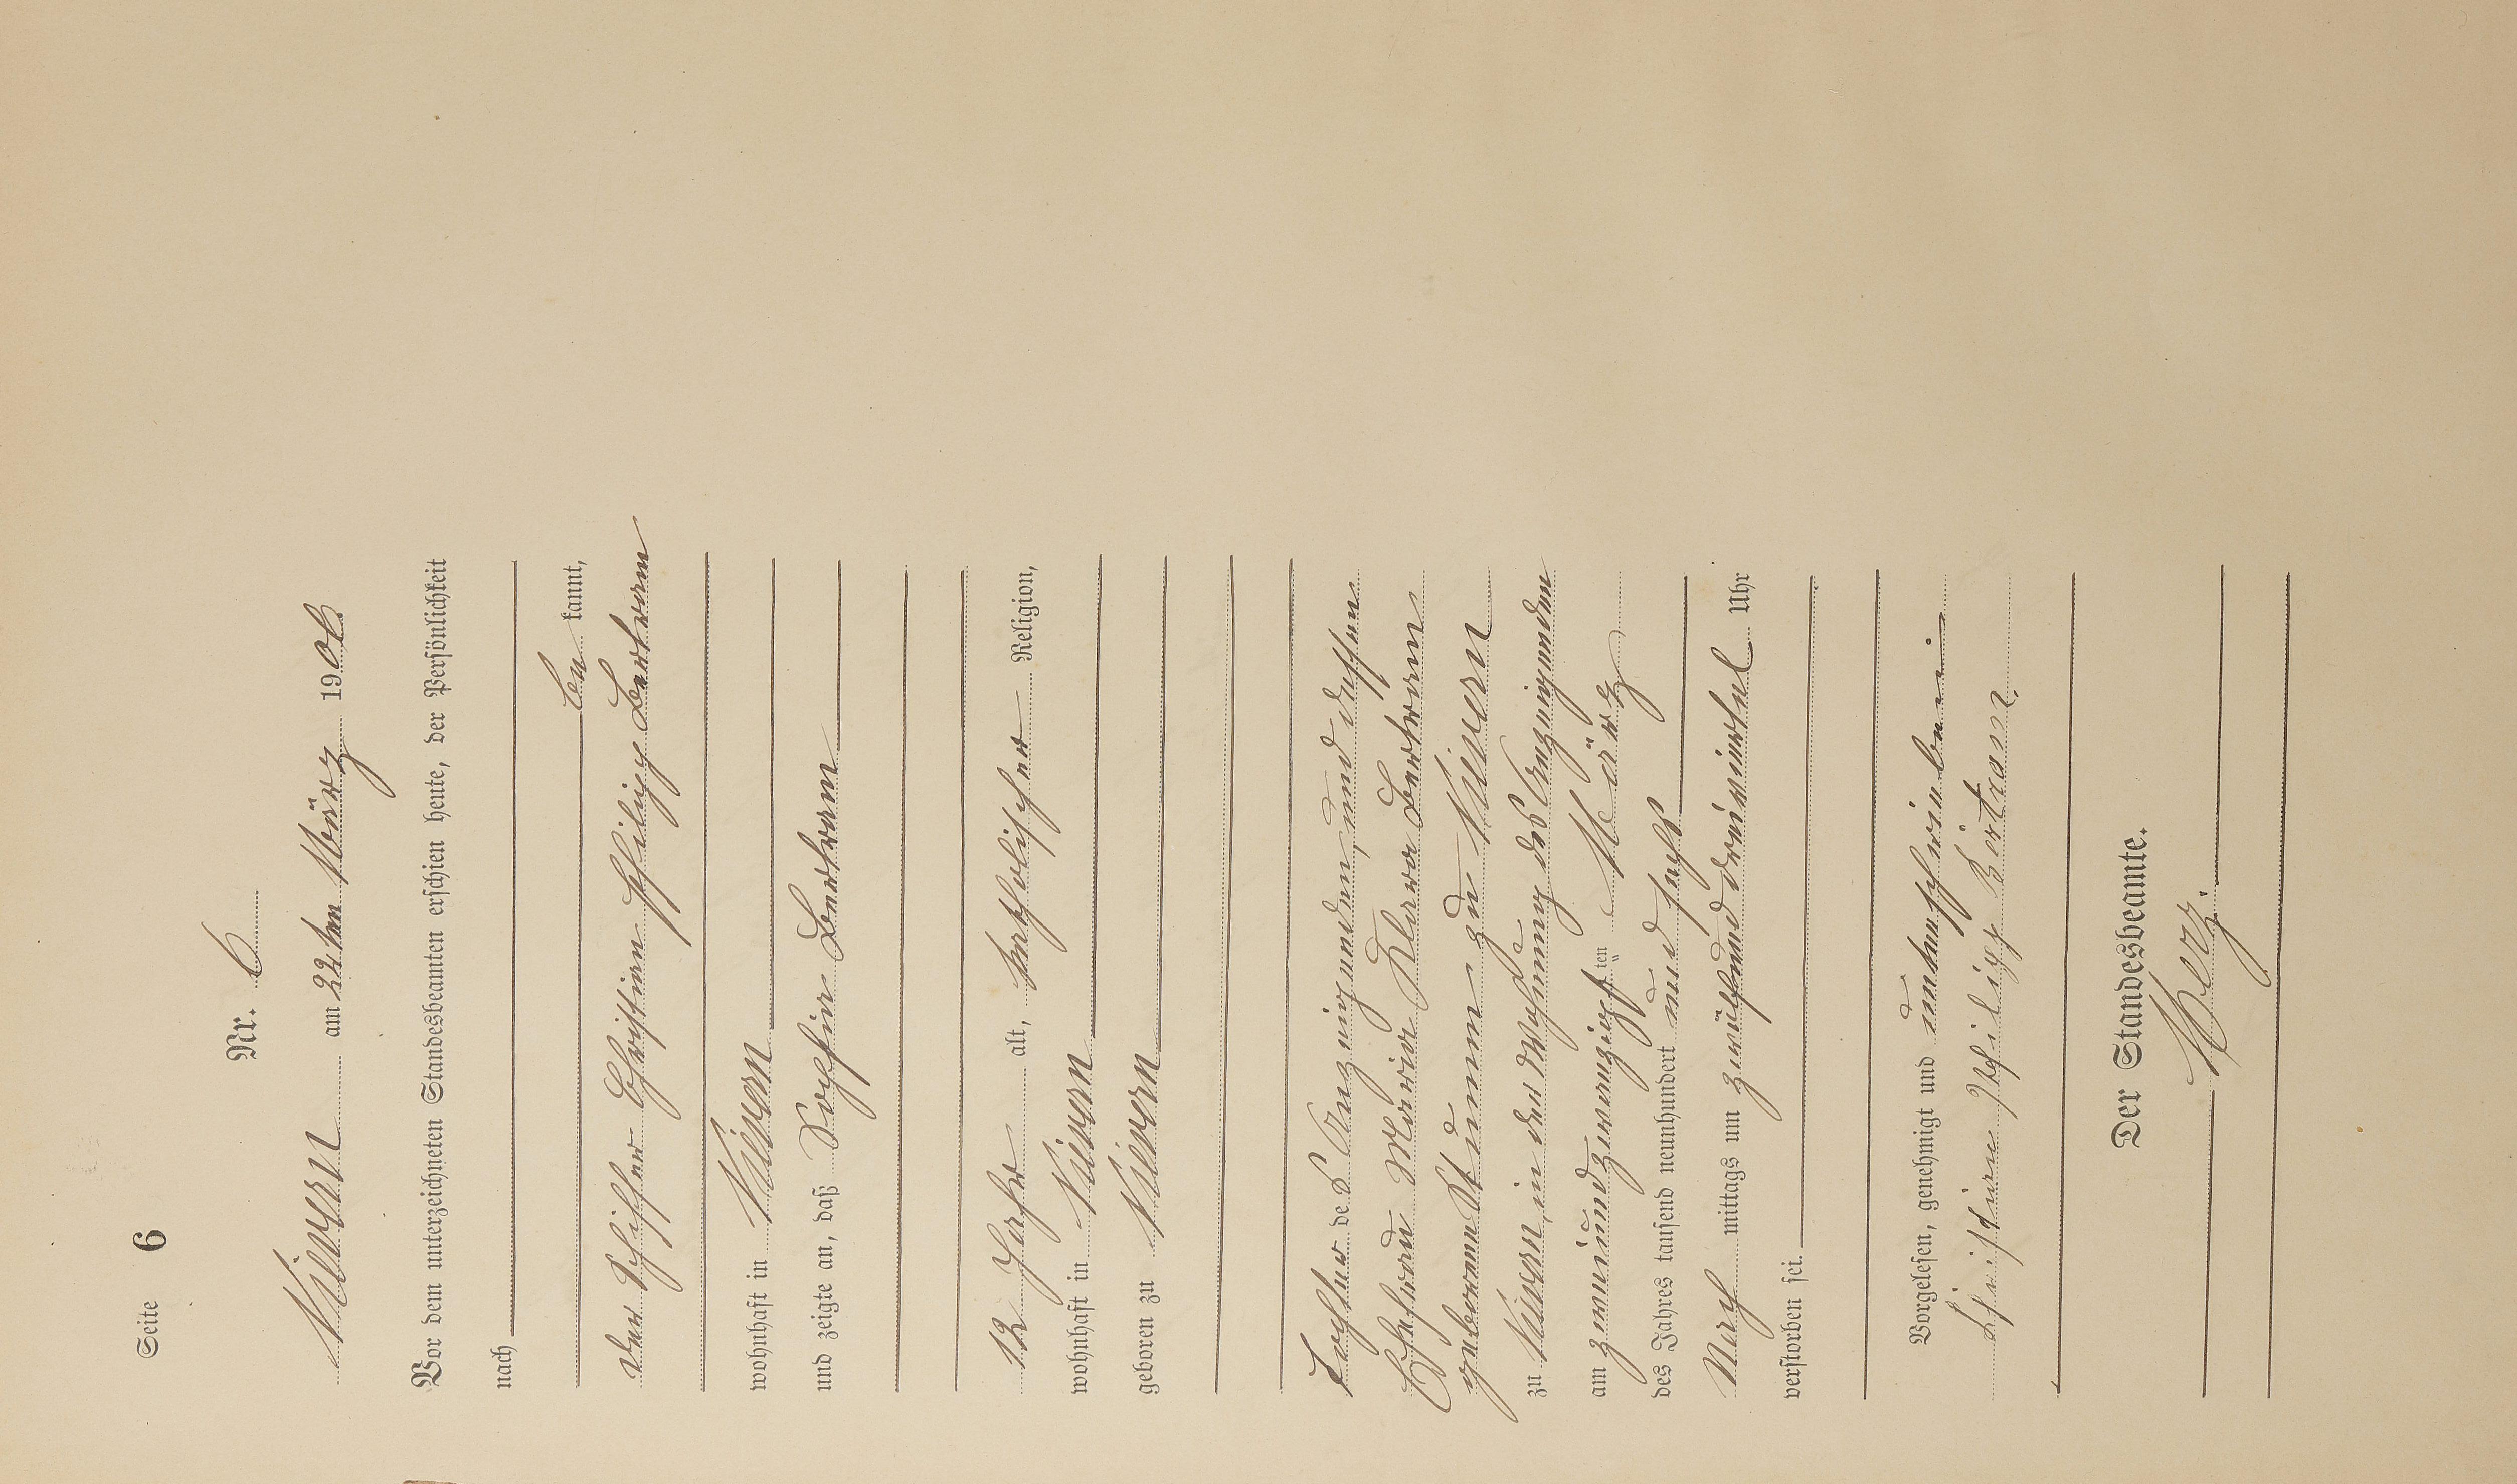 Seite 6
Nr. 6
Nievern am 22ten März 1906
Vor dem unterzeichneten Standesbeamten erschien heute, der Persönlichkeit
nach
be kannt,
der Schiffer Christian Philipp Bertram
wohnhaft in Nievern
und zeigte an, daß Sophie Bertram
12 Jahre alt, katholischer Religion,
wohnhaft in Nievern
geboren zu Nievern
Tochter des Anzeigenden, und dessen
Ehefrau Maria Klara Bertram
geborenen zu Nievern
zu Nievern, in der Wohnung des Anzeigenden
am zweiundzwanzigsten März
des Jahres tausend neunhundert und sechs
Nach mittags um zwölfunddreiviertel Uhr
verstorben sei.
Vorgelesen, genehmigt und unterschrieben
Christian Philipp Bertram.
Der Standesbeamte.
Herz.